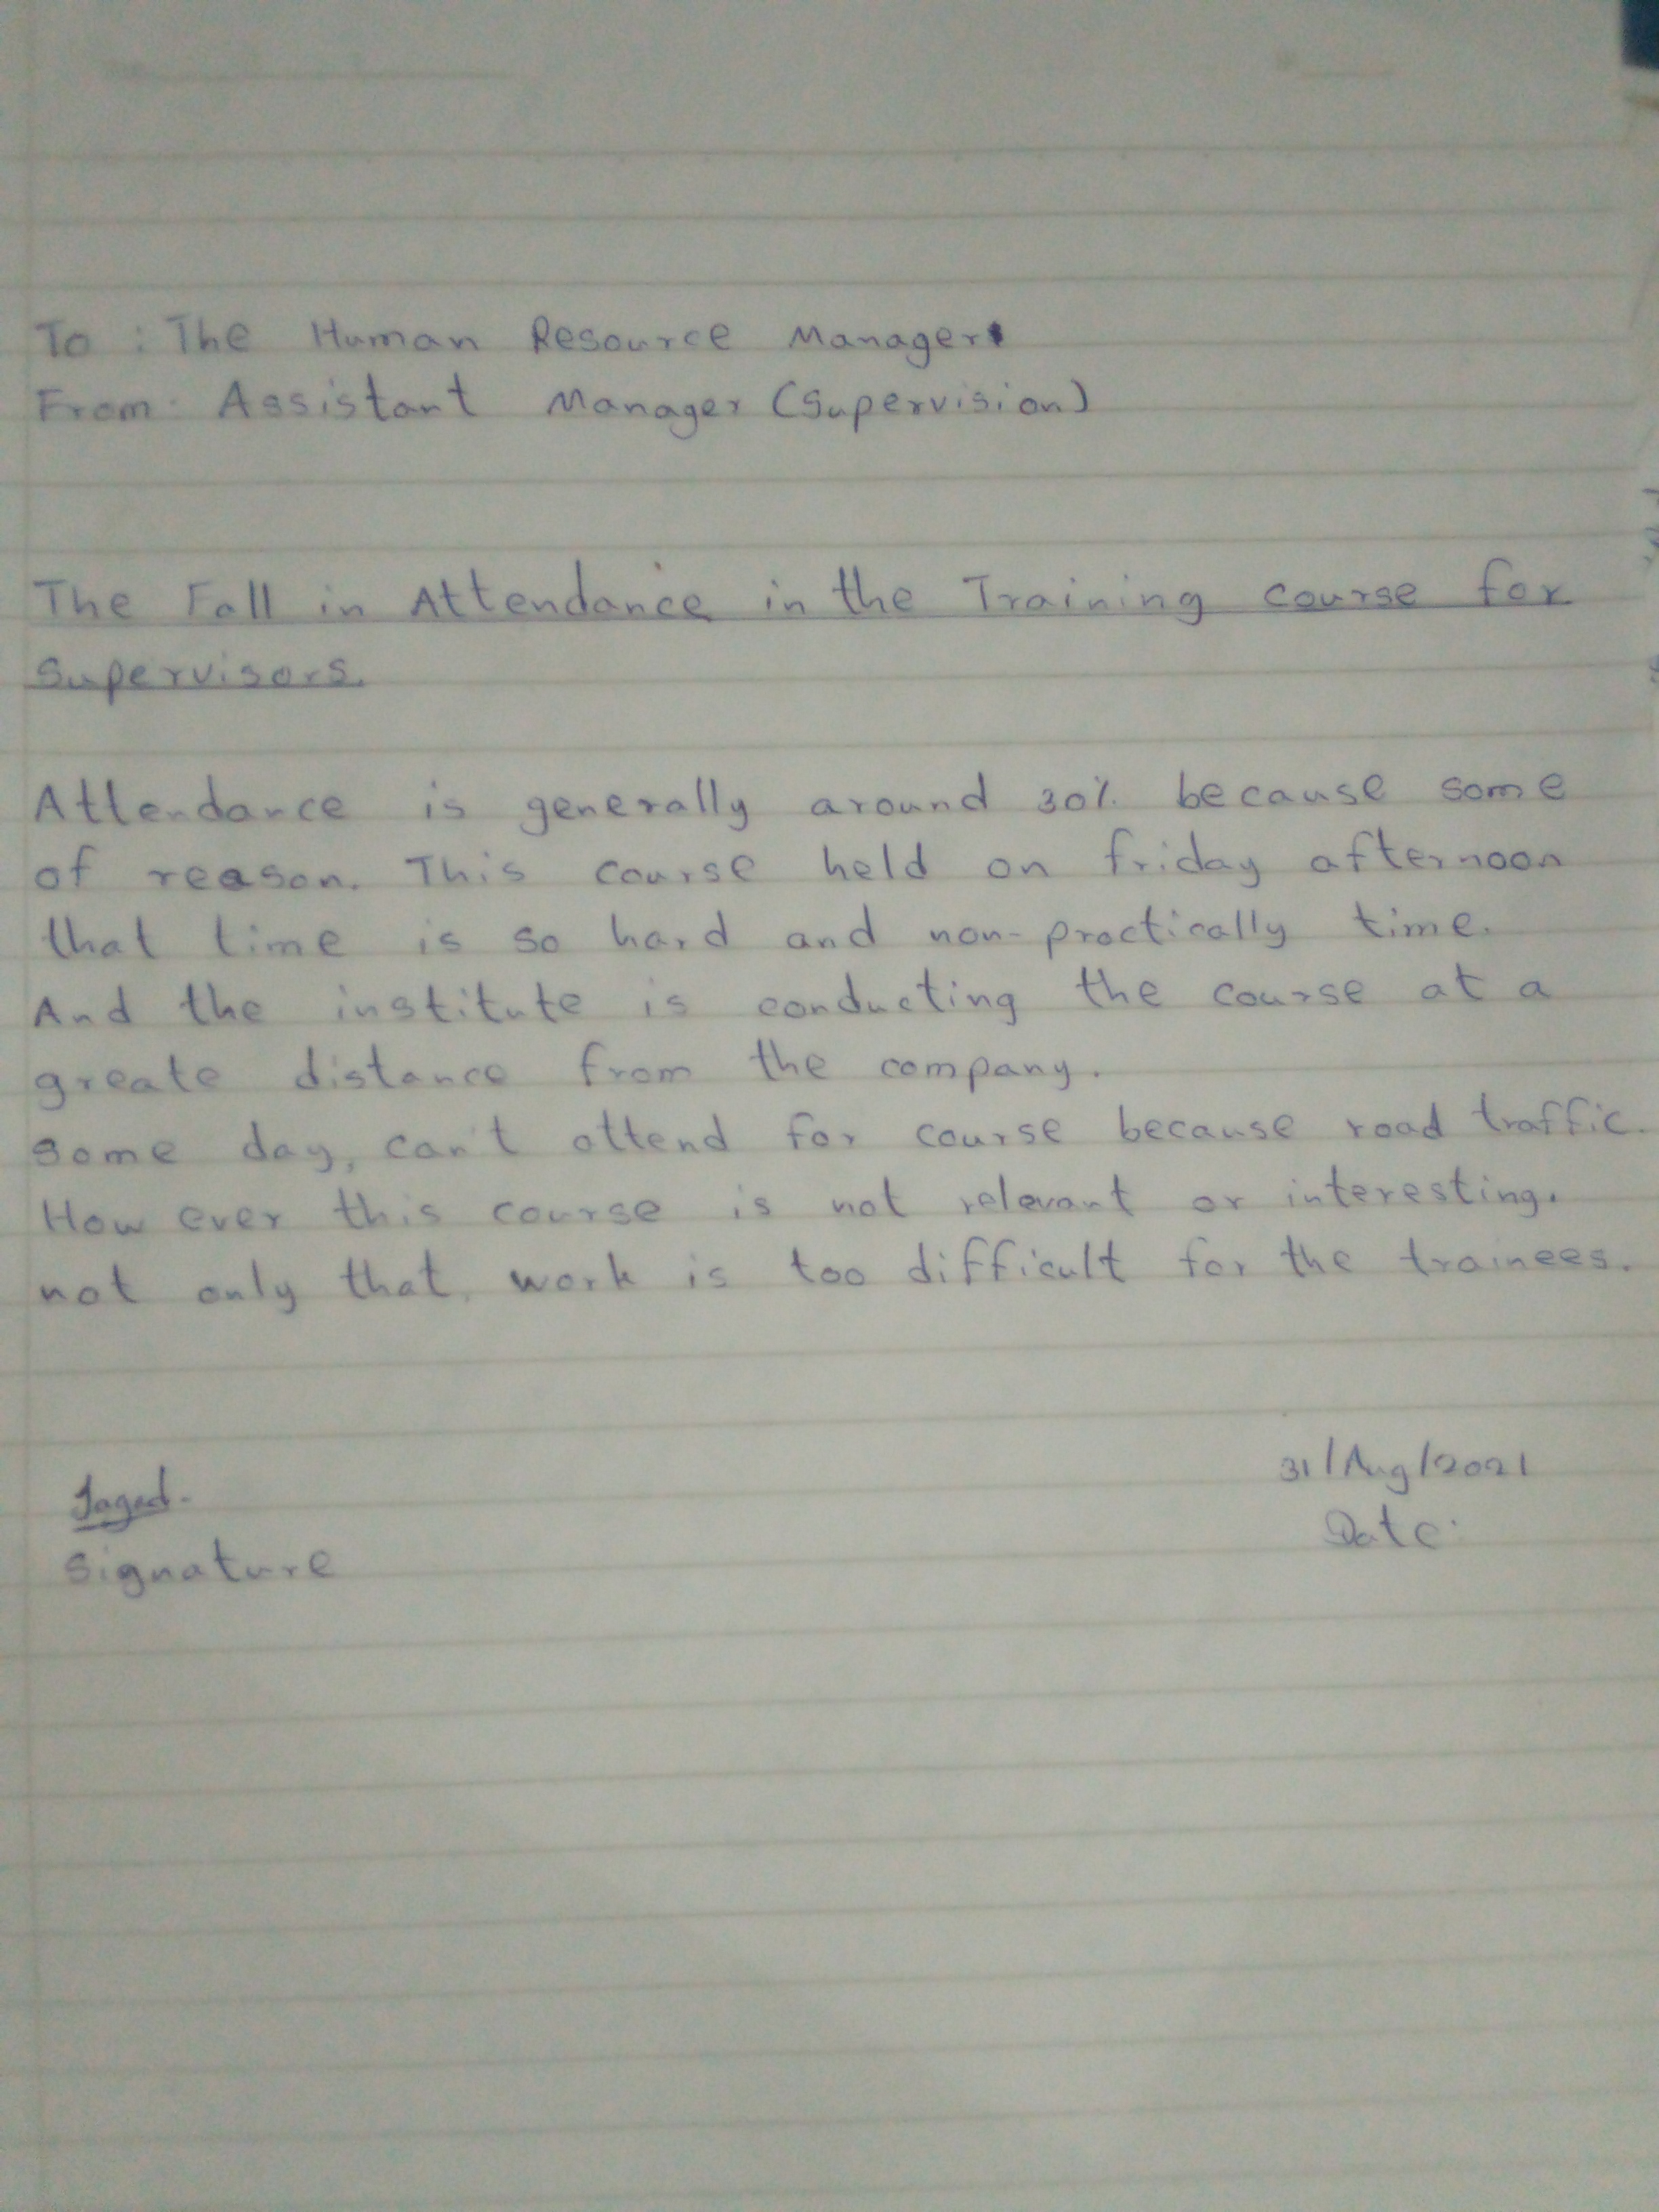 To : The Human Resource Manager
From Assistant Manager (Supervision)
The Fall in Attendance in the Training course for
Supervisors.
Attendance is generally around 30% because some
of reason. This course held on friday afternoon
that time is so hard and non-practically time.
And the institute is conducting the course at a
greate distance from the company.
Some day, can't attend for course because road traffic.
How ever this course is not relevant or interesting.
not only that, work is too difficult for the trainees.
31/Aug/2021
Date
Signature